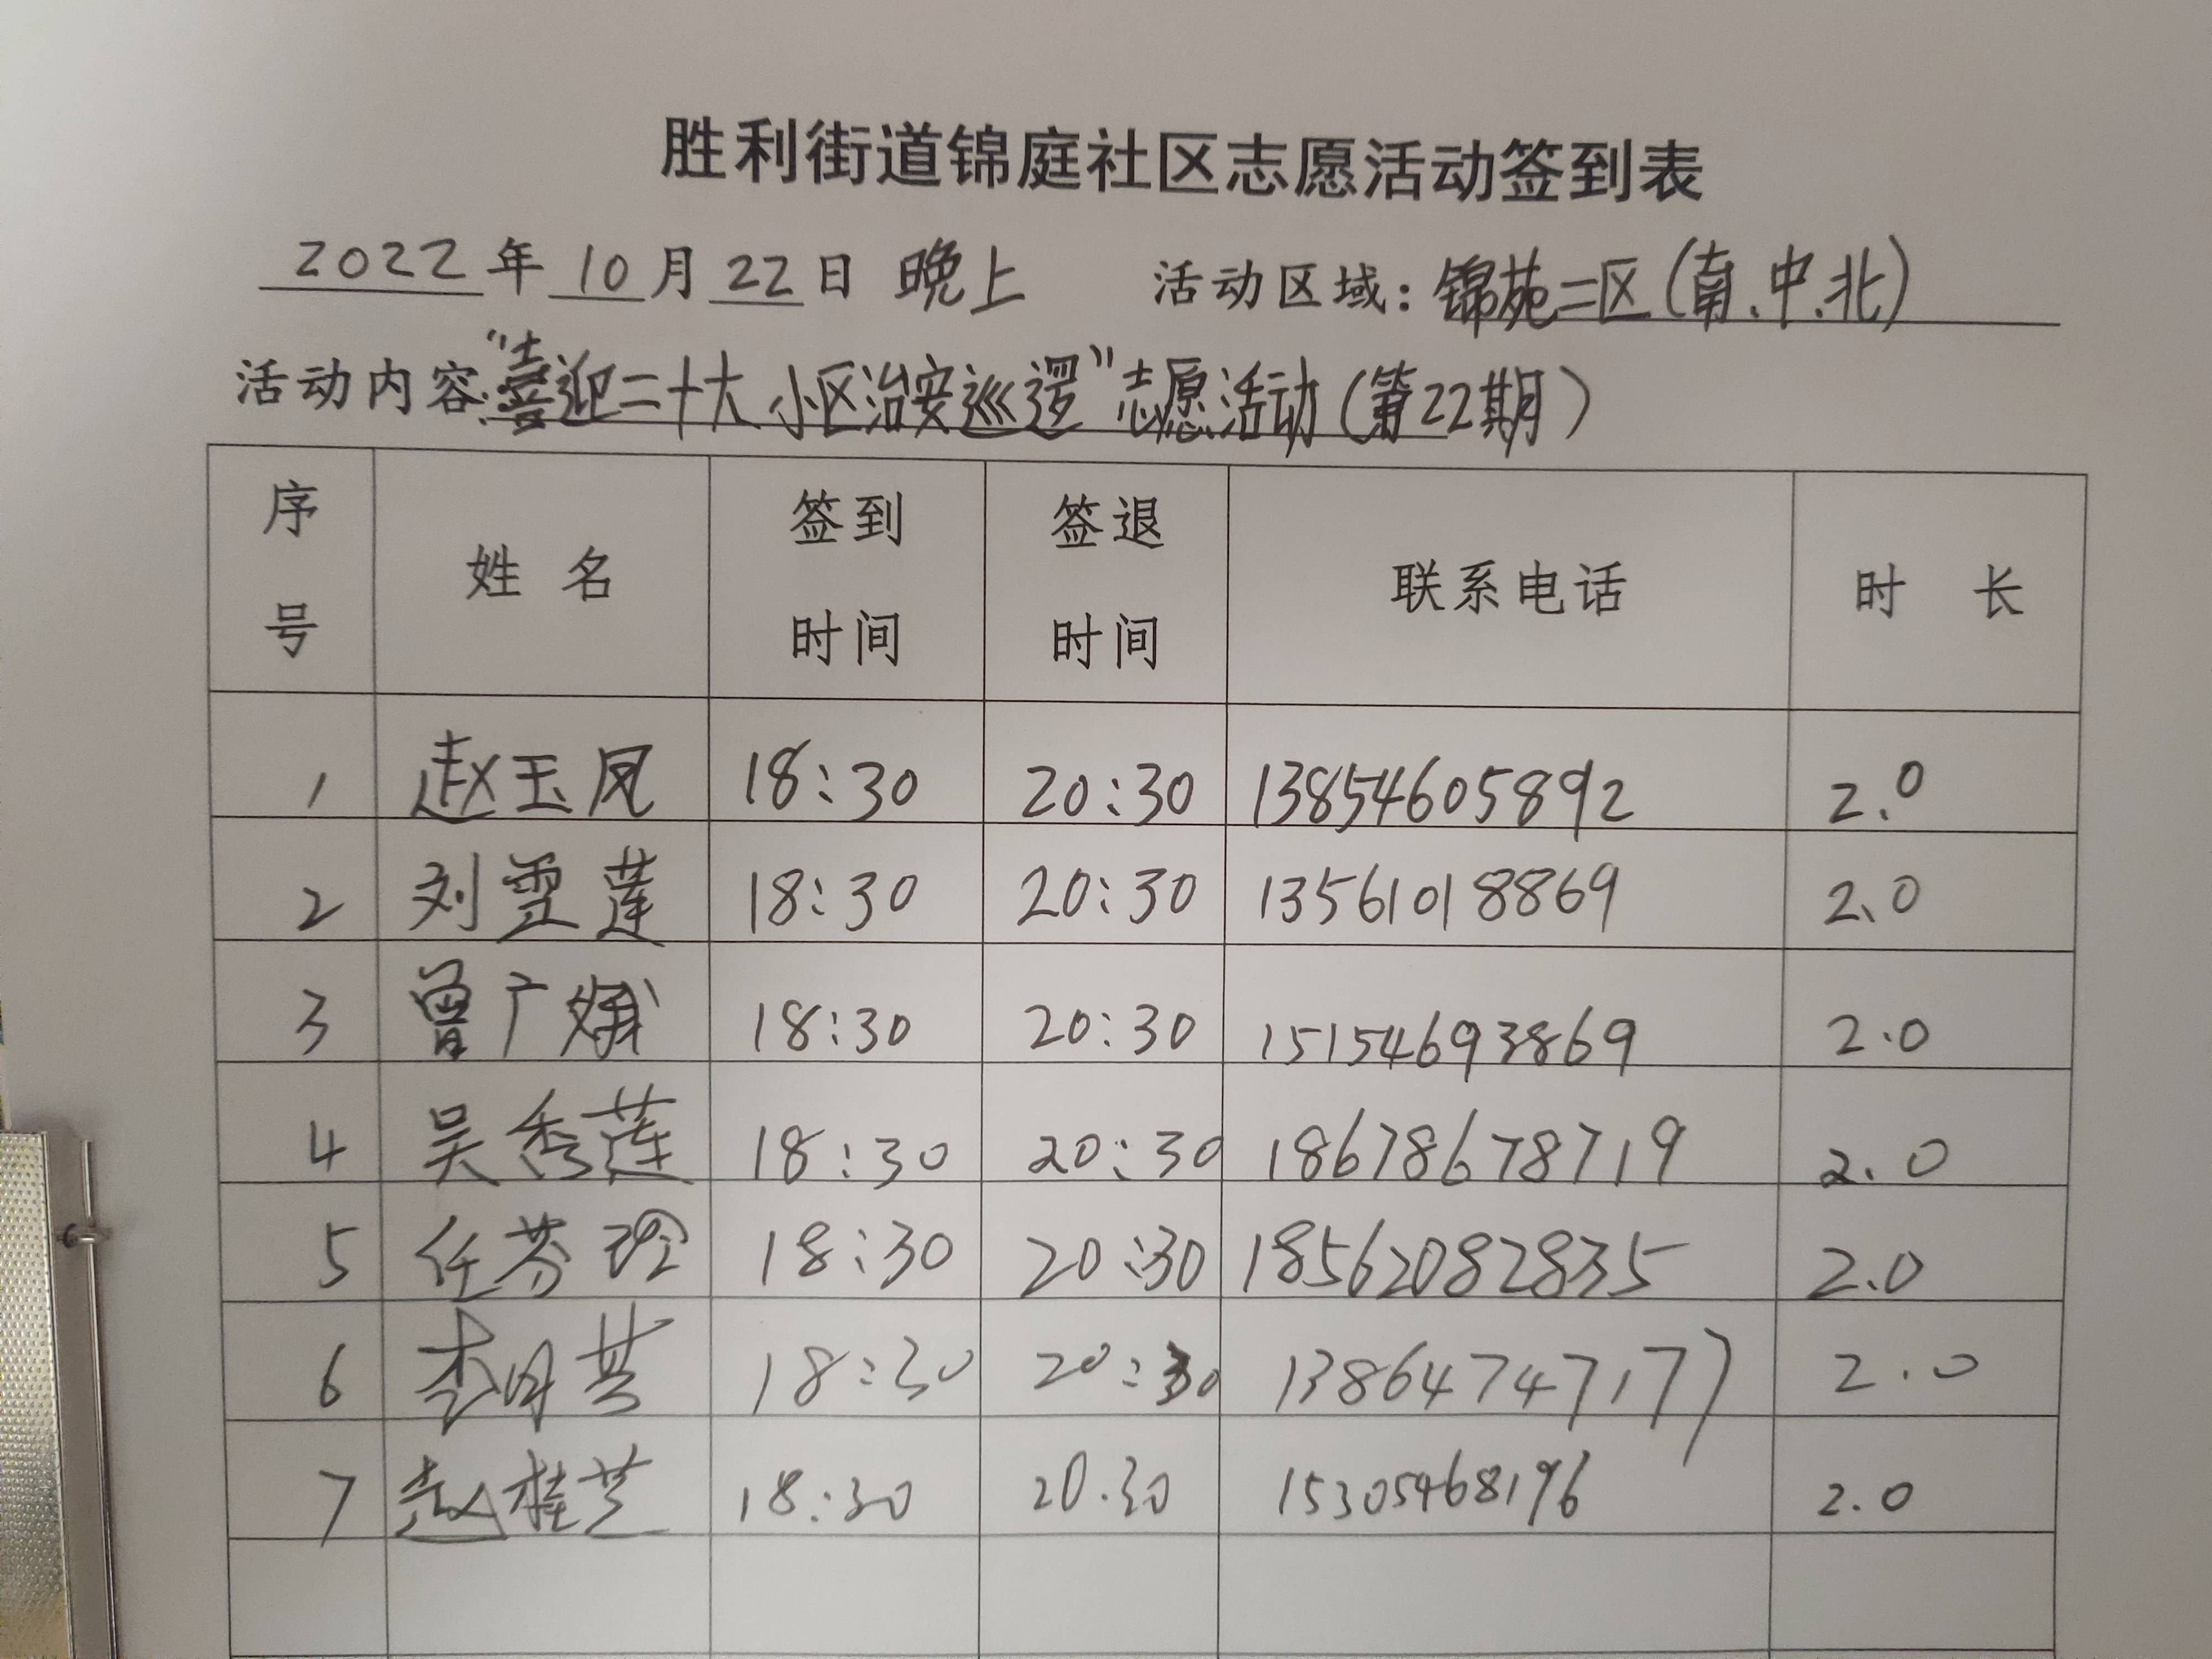 胜利街道锦庭社区志愿活动签到表
2022年10月22日 晚上 活动区域:锦苑二区(南.中.北)
活动内容:"喜迎二十大 小区治安巡逻"志愿活动(第22期)
序号 姓名 签到时间 签退时间 联系电话 时长
1 赵玉凤 18:30 20:30 13854605892 2.0
2 刘雪莲 18:30 20:30 13561018869 2.0
3 曾广娥 18:30 20:30 15154693869 2.0
4 吴秀莲 18:30 20:30 18678678719 2.0
5 任芬玲 18:30 20:30 18562082835 2.0
6 李月芸 18:30 20:30 13864747177 2.0
7 赵桂芝 18:30 20.30 15305468196 2.0